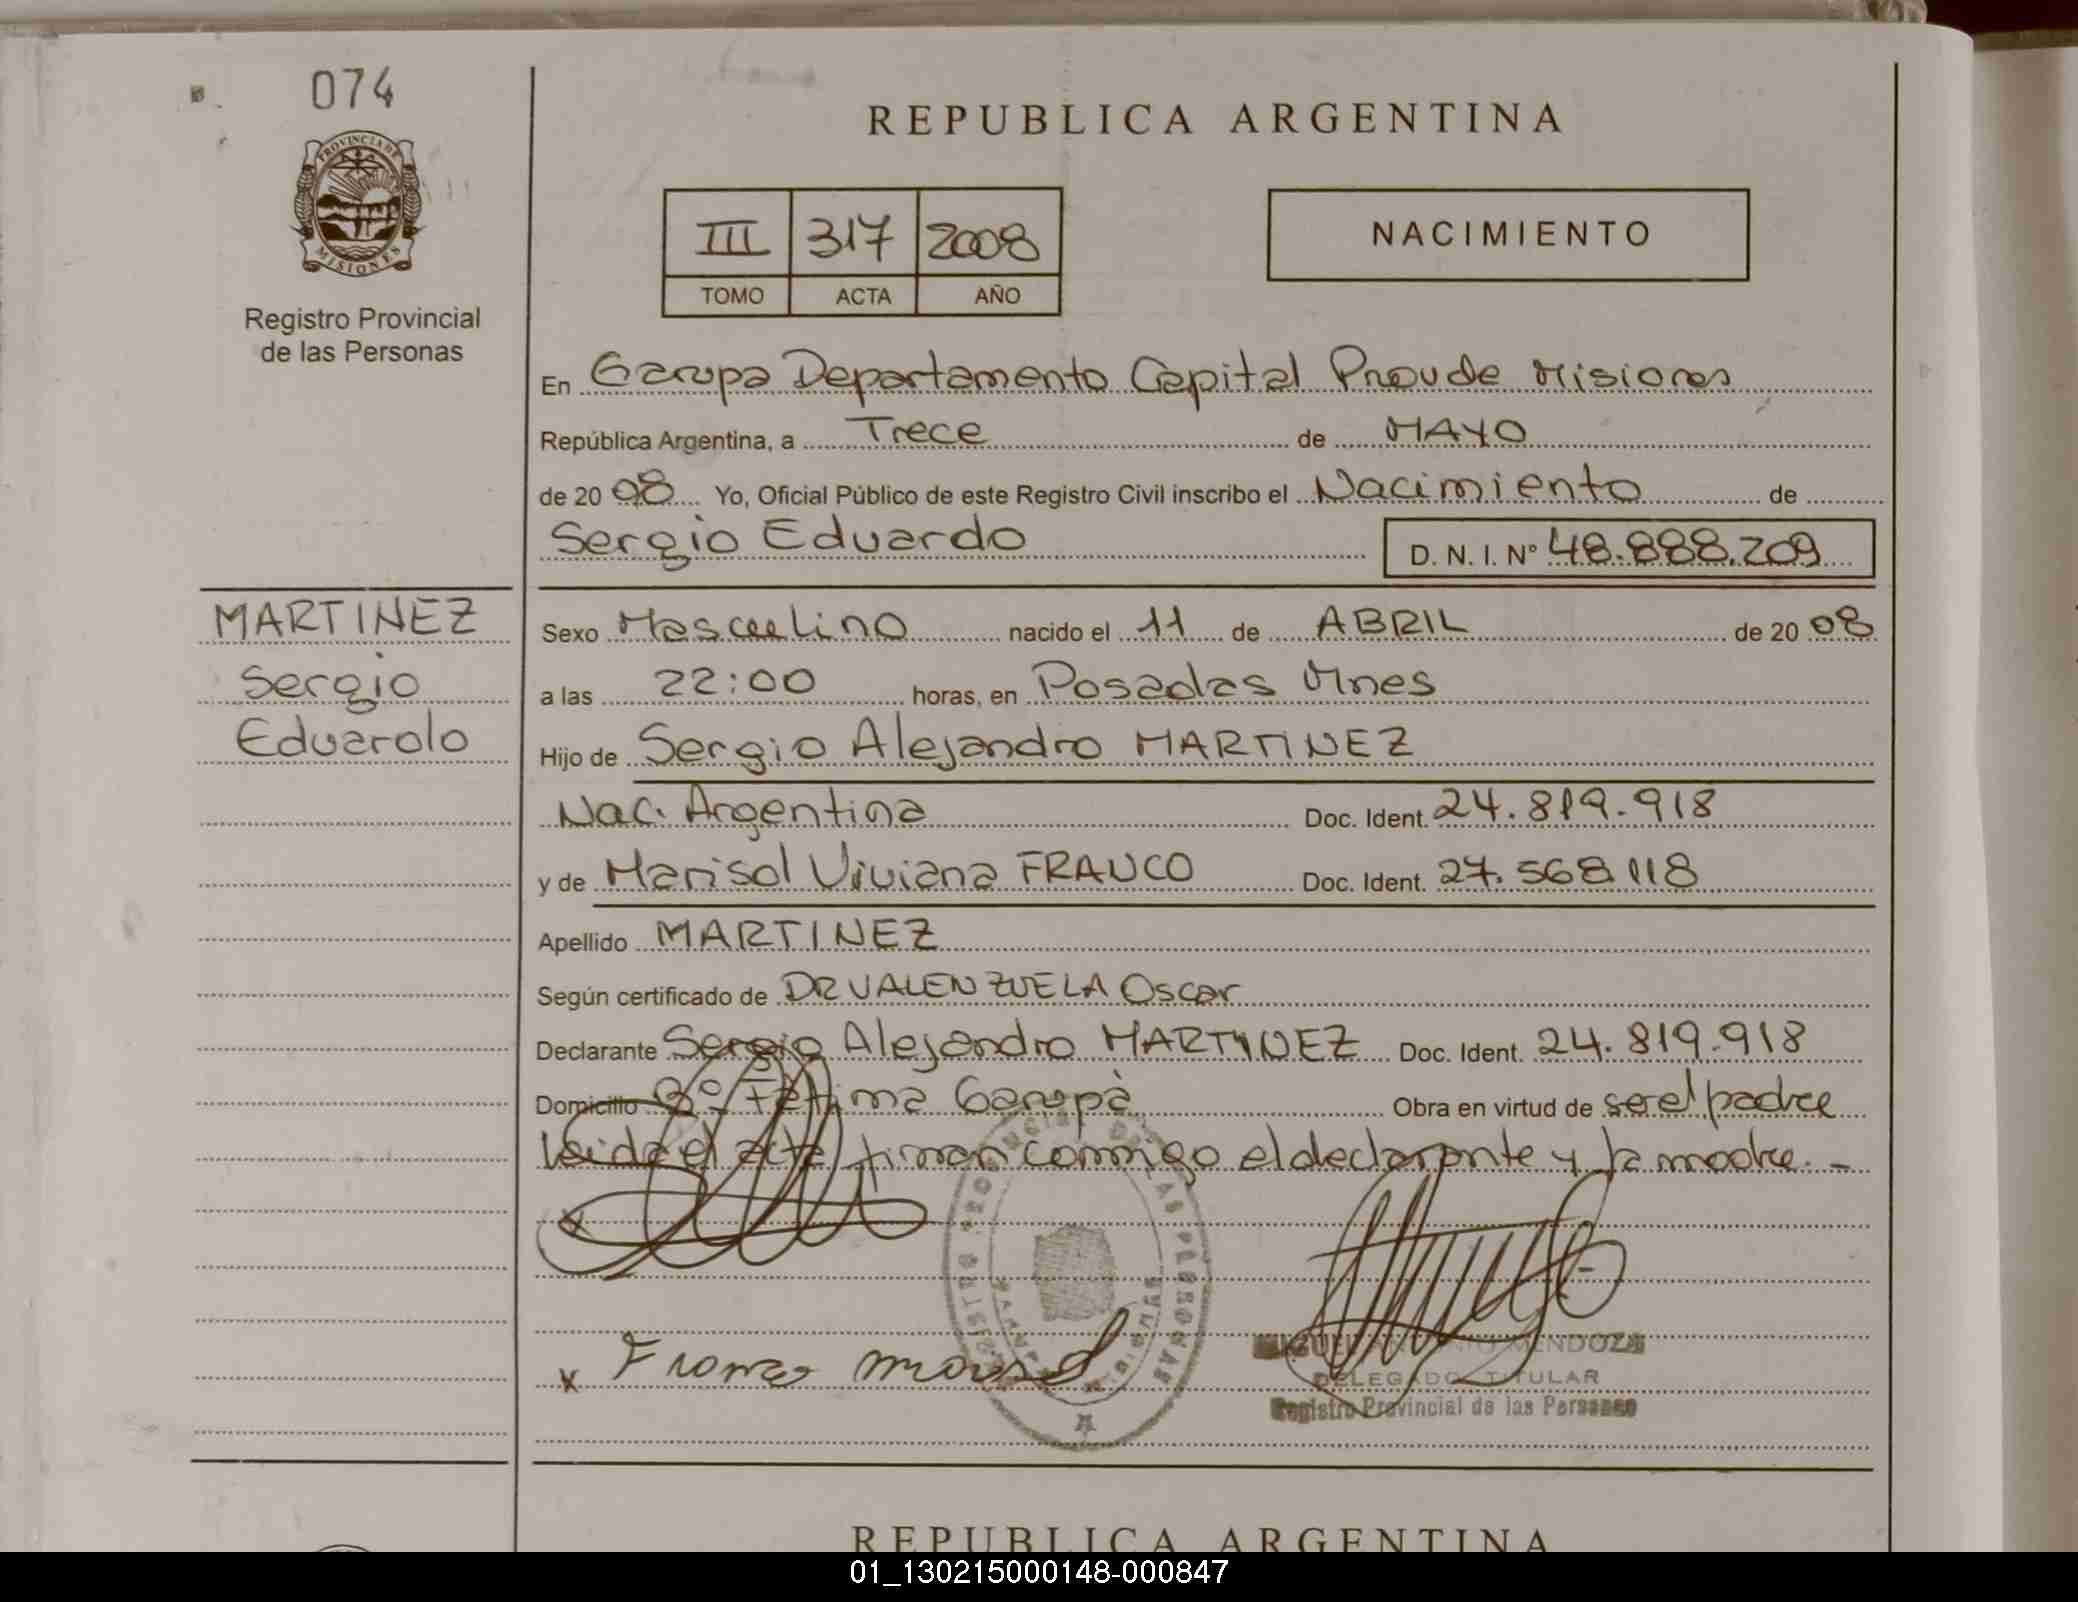 074
PROVINCIA DE
MISIONES
Registro Provincial
de las Personas
REPUBLICA ARGENTINA
III 317 2008
TOMO ACTA AÑO
NACIMIENTO
En Garupa Departamento Capital Prov de Misiones
República Argentina, a Trece de MAYO
de 20 08 Yo, Oficial Público de este Registro Civil inscribo el Nacimiento de
Sergio Eduardo D. N. I. N° 48.888.209
MARTINEZ
Sergio
Eduardo
Sexo Masculino nacido el 11 de ABRIL de 20 08
a las 22:00 horas, en Posadas Mnes
Hijo de Sergio Alejandro MARTINEZ
Nac. Argentina Doc. Ident. 24.819.918
y de Marisol Viviana FRANCO Doc. Ident. 27.568.118
Apellido MARTINEZ
Según certificado de DR VALENZUELA Oscar
Declarante Sergio Alejandro MARTINEZ Doc. Ident. 24.819.918
Domicilio Bº Fátima Garupà Obra en virtud de ser el padre
Leida el acta firman conmigo el declarante y la madre. -
x
x Franco Marisol
REGISTRO PROVINCIAL DE LAS PERSONAS
MIGUEL ANTONIO MENDOZA
DELEGADO TITULAR
Registro Provincial de las Personas
REPUBLICA ARGENTINA
01_130215000148-000847